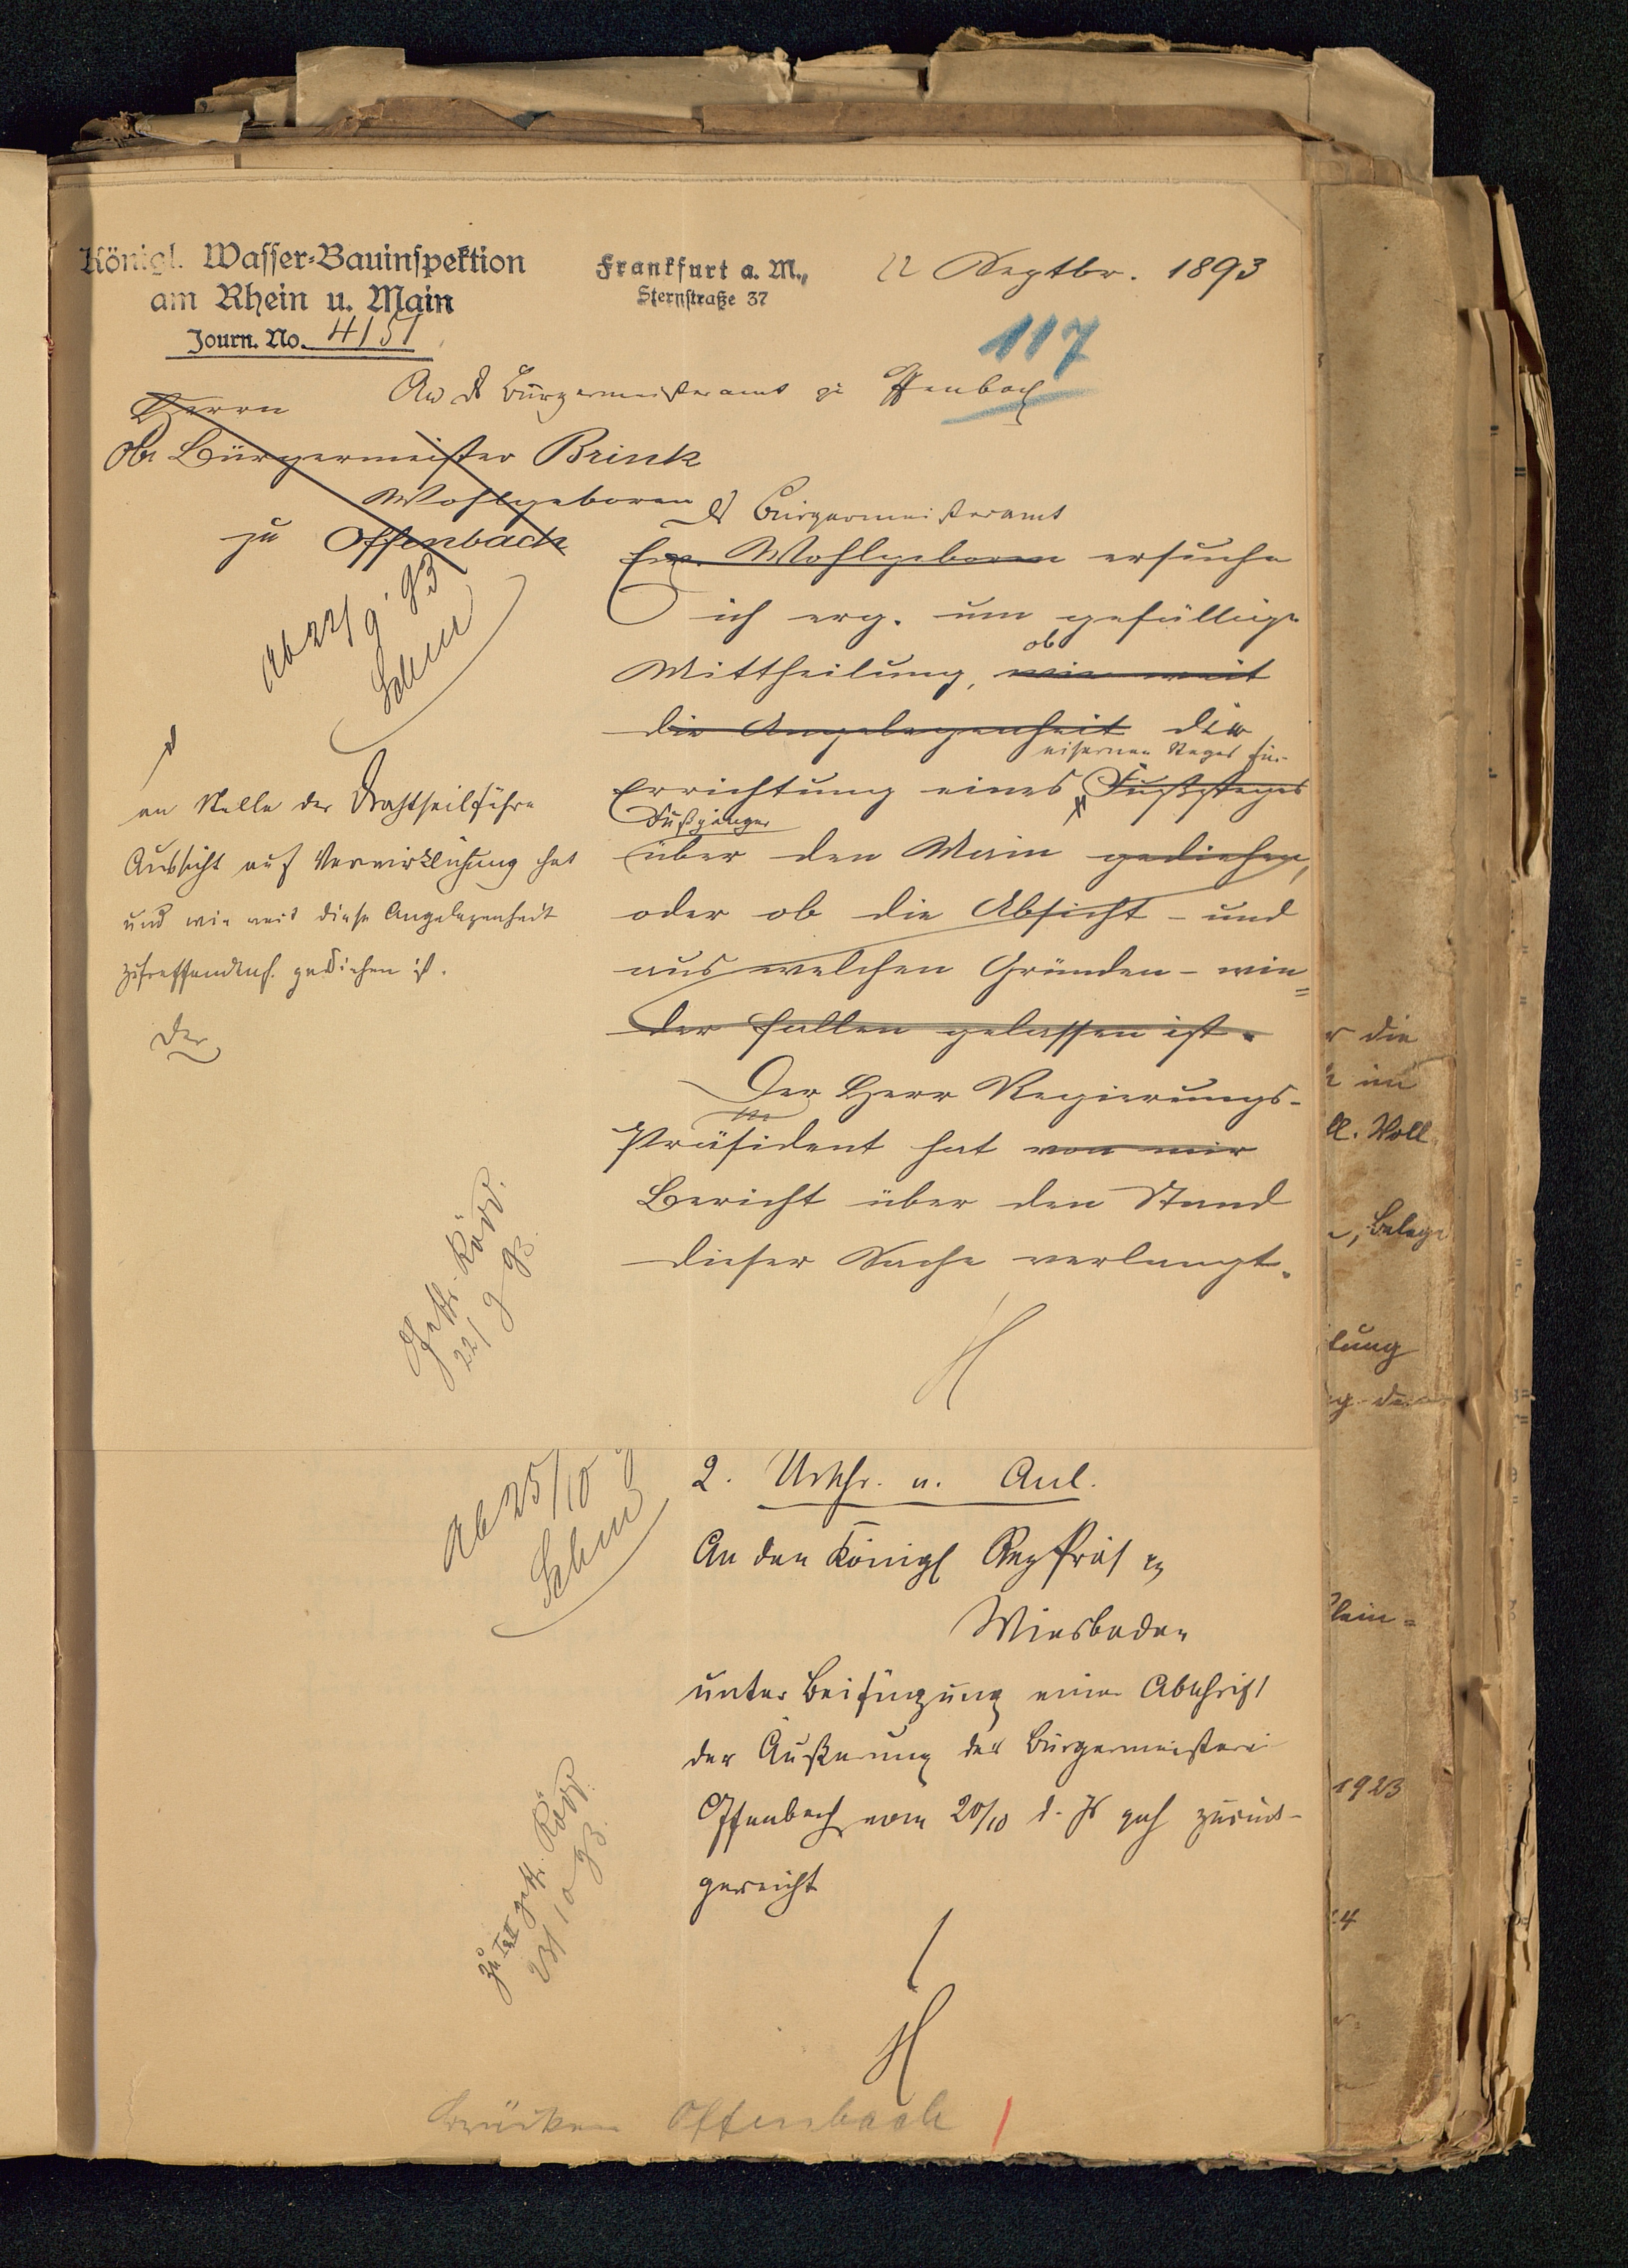 Königl. Wasser-Bauinspektion
am Rhein u. Main
Journ. No. 4151
Frankfurt a. M.,
Sternstraße 37
22 Septbr. 1893
117
An d Bürgermeisteramt zu Offenbach
Herrn
Ob. Bürgermeister Brink
Wohlgeboren
zu Offenbach
ab 22/9 93
d Bürgermeisteramt
Ew. Wohlgeboren ersuche
ich erg. um gefällige
ob
Mittheilung, wie weit
die Angelegenheit die
eisernen Steges für
Errichtung eines Fußsteges
Fußgänger
über den Main gediehen,
oder ob die Absicht - und
aus welchen Gründen - wie=
der fallen gelassen ist.
an Stelle der Drahtseilfähre
Aussicht auf Verwirklichung hat
und wie weit diese Angelegenheit
zutreffendenf. gediehen ist.
Der
Der Herr Regierungs-
Präsident hat von mir
Bericht über den Stand
dieser Sache verlangt.
22/9 93.
H
ab 25/10
2. Urschr. u. Anl.
An den Königl Reg Präs zu
Wiesbaden
unter Beifügung einer Abschrift
der Äußerung der Bürgermeisterei
Offenbach vom 20/10 d. Js geh zurück-
gereicht
23/10 93.
H
Brücken Offenbach
r die
im
ll. Woll
, Belage
tung
1923